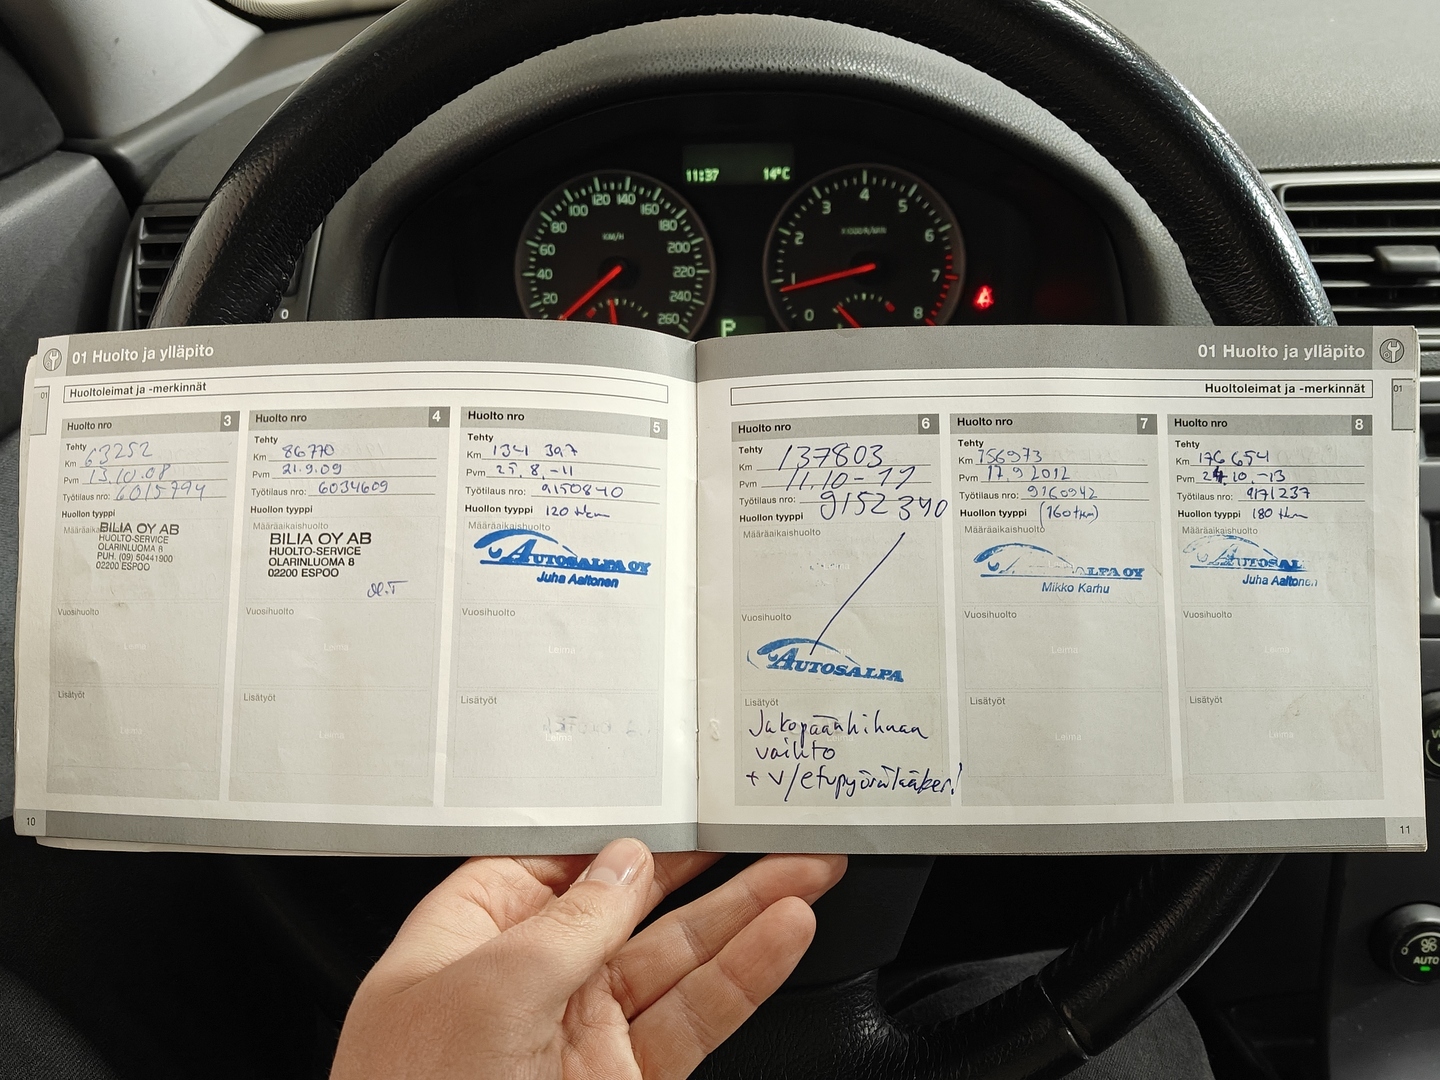 11:37 14°C
20 40 60 80 100 120 140 160 180 200 220 240 260
KM/H
0 1 2 3 4 5 6 7 8
P
0
01 Huolto ja ylläpito
01
Huoltoleimat ja -merkinnät
Huolto nro 3
Tehty
Km 63252
Pvm 13.10.08
Työtilaus nro: 6015794
Huollon tyyppi
Määräaikaishuolto
BILIA OY AB
HUOLTO-SERVICE
OLARINLUOMA 8
PUH. (09) 50441900
02200 ESPOO
Vuosihuolto
Leima
Lisätyöt
Leima
Huolto nro 4
Tehty
Km 86770
Pvm 21.9.09
Työtilaus nro: 6034609
Huollon tyyppi
Määräaikaishuolto
BILIA OY AB
HUOLTO-SERVICE
OLARINLUOMA 8
02200 ESPOO
Vuosihuolto
Leima
Lisätyöt
Leima
Huolto nro 5
Tehty
Km 134 397
Pvm 25.8.-11
Työtilaus nro: 9150840
Huollon tyyppi 120 tkm
AUTOSALPA OY
Juha Aaltonen
Vuosihuolto
Leima
Lisätyöt
Leima
10
01 Huolto ja ylläpito
01
Huoltoleimat ja -merkinnät
Huolto nro 6
Tehty
Km 137803
Pvm 11.10-11
Työtilaus nro: 9152340
Huollon tyyppi
Määräaikaishuolto
Vuosihuolto
Leima
AUTOSALPA
Lisätyöt
Jakopäänhihnan
vaihto
+ v/etupyörälaakeri
Huolto nro 7
Tehty
Km 156973
Pvm 17.9.2012
Työtilaus nro: 9160942
Huollon tyyppi (160 tkm)
Määräaikaishuolto
AUTOSALPA OY
Mikko Karhu
Vuosihuolto
Leima
Lisätyöt
Leima
Huolto nro 8
Tehty
Km 176654
Pvm 24.10.-13
Työtilaus nro: 9171237
Huollon tyyppi 180 tkm
Määräaikaishuolto
AUTOSALPA
Juha Aaltonen
Vuosihuolto
Leima
Lisätyöt
Leima
11
AUTO